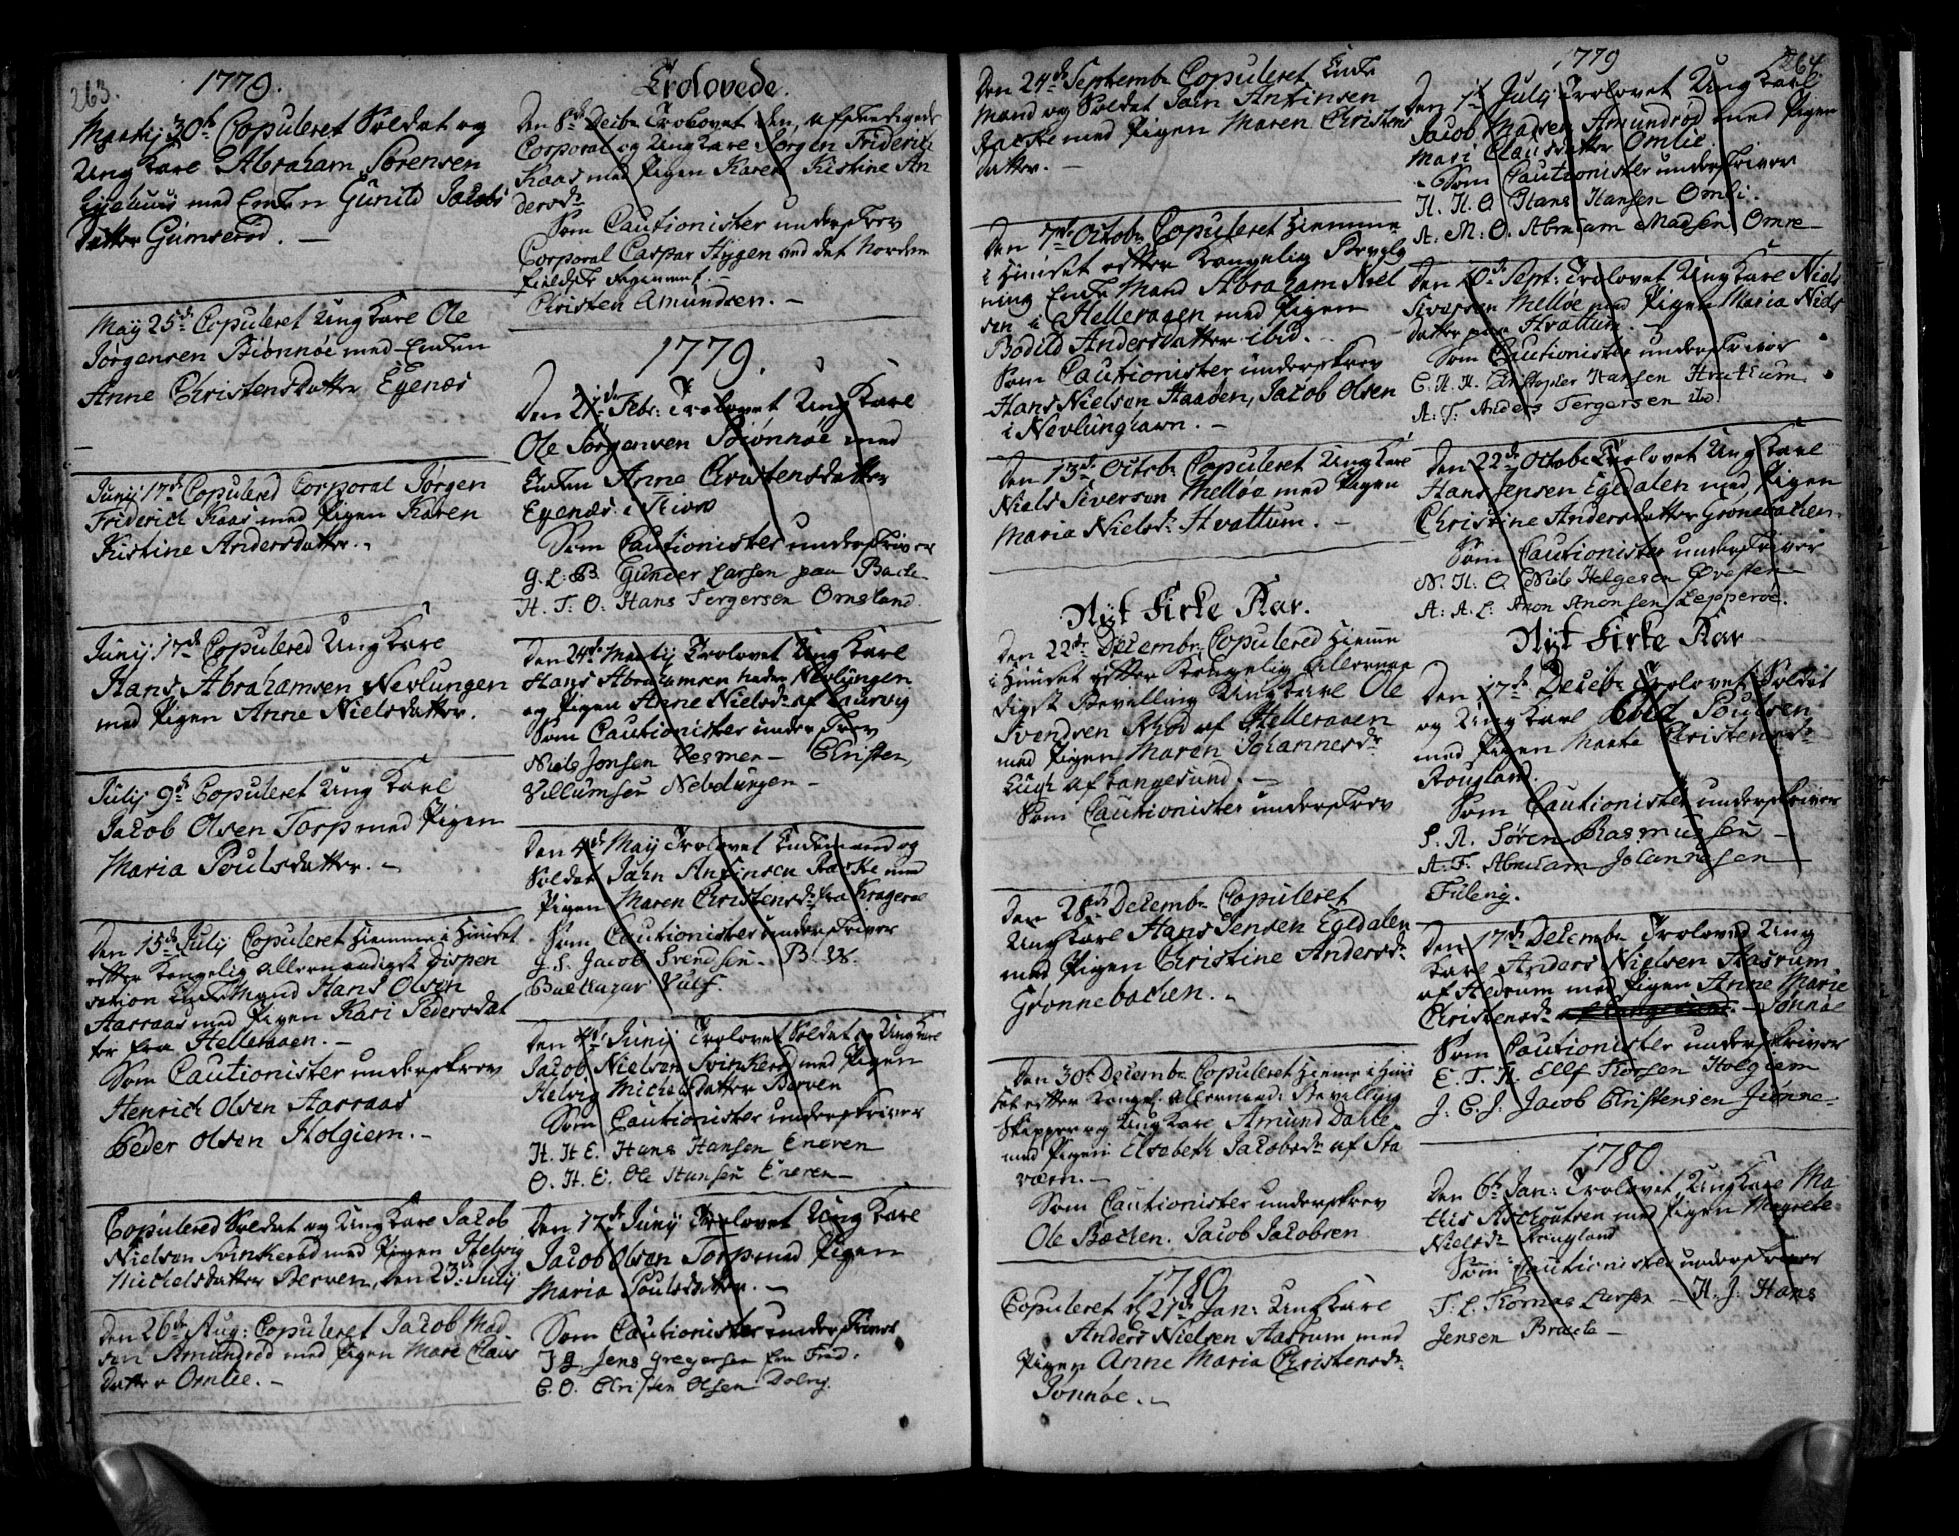 263.
1779.
Martij 30te Copuleret Soldat og
Ung Karl Abraham Sørensen
med Enken Gunild Jacobs
datter Gumserød. —
May 25de Copuleret Ung Karl Ole
Jørgensen Biønnøe med Enken
Anne Christensdatter Egenæs
Junij 17de Copulered Corporal Jørgen
Friderich Kaas med Pigen Karen
Kistine Andersdatter. —
Junij 17de Copulered Ung Karl
Hans Abrahamsen Nevlungen
med Pigen Anne Nielsdatter.
Julij 9de Copuleret Ung Karl
Jacob Olsen Torp med Pigen
Maria Poulsdatter. —
Den 15de Julij Copuleret hiemme i Huuset
efter Kongelig allernaadigst Dispen
sation Enke Mand Hans Olsen
Aarraas med Pigen Kari Pedersdat
ter fra Helleraaen. —
Som Cautionister underskrev
Henrich Olsen Aarraas
Peder Olsen Holgiem. —
Copulered Soldat og Ung Karl Jacob
Nielsen Svinkerød med Pigen Helvig
Michelsdatter Berven, den 23de Julij
Den 26de Aug: Copuleret Jacob Mad
sen Amundrød med Pigen Mari Claus
datter Omlie. —
Trolovede.
Den 8de Decbr Trolovet den afskedigede
Corporal og Ung Karl Jørgen Friderich
Kaas med Pigen Karen Kistine An
dersdr
Som Cautionister underskrev
Corporal Caspar Stygen ved det Norden
fieldske Regiment.
Christen Amundsen. —
1779.
Den 21de Febr: Trolovet Ung Karl
Ole Jørgensen Biønnøe med
Enken Anne Christensdatter
Egenæs i
Som Cautionister underskriver
G. L. B. Gunder Larsen paa Backe
H. T. O. Hans Tergersen Omsland.
Den 24de Martij Trolovet Ung Karl
Hans Abrahamsen Nevlungen
og Pigen Anne Nielsdr af Laurvig
Som Cautionister underskrev
Niels Jonsen — Christen
Villumsen Nevlungen —
Den 4de Maij Trolovet Enkemand og
Soldat Jahn Antinsen Raske med
Pigen Maren Christensdr fra Krageroe
Som Cautionister underskriver
J. S. Jacob Svendsen. B. W.
Baltazar Wulf.
Den 4de Junij Trolovet Soldat og Ung Karl
Jacob Nielsen Svinkerød med Pigen
Helvig Michelsdatter Berven
Som Cautionister underskriver
H. H. E. Hans Hansen Eneren
O. H. E. Ole Hansen Eneren —
Den 17de Junij Trolovet Ung Karl
Jacob Olsen Torp med Pigen
Maria Poulsdatter. —
Som Cautionister underskriver
J. G. Jens Gregersen
C. O. Christen Olsen Dolvig.
Den 24de Septembr Copuleret Enke
Mand og Soldat Jahn Antinsen
Raske med Pigen Maren Christens
datter. —
Den 7de Octobr Copuleret hiemme
i Huuset efter Kongelig Bevil
ning Enke Mand Abraham Niel
sen i Helleraaen med Pigen
Bodild Andersdatter ibid. —
Som Cautionister underskrev
Hans Nielsen Haaden, Jacob Olsen
i Nevlunghavn. —
Den 13de Octobr Copuleret Ung Karl
Niels Siverson Melløe med Pigen
Maria Nielsdr Hvattum. —
Nyt Kirke Aar.
Den 22de Decembr Copulered hiemme
i Huuset efter Kongelig Allernaa
digst Bevilling Ung Karl Ole
Svendsen Rhod af Helleraaen
med Pigen Maren Johannesdr
af Langesund. —
Som Cautionister underskrev
Den 28de Decembr Copuleret
Ung Karl Hans Jensen Egedalen
med Pigen Christine Andersdr
Grønnebachen. —
Den 30te Decembr Copuleret hieme i Huu
set efter Kongel. allernaad: Bevilling
Skipper og Ung Karl Amund Dahll
med Pigen Elsebeth Jacobsdr af Sta
værn. —
Som Cautionister underskrev
Ole Bachen. Jacob Jacobsen
1780
Copuleret d 27de Jan: Ung Karl
Anders Nielsen Aasrum med
Pigen Anne Maria Christensdr
Jonnøe. —
1779
264.
Den 1te Julij Trolovet Ung Karl
Jacob Madsen Amundrød med Pigen
Mari Clausdatter Omlie.
Som Cautionister underskriver
H. H. O. Hans Hansen Omli.
A. M. O. Abraham Madsen Omre —
Den 10de Sept: Trolovet Ung Karl Niels
Siverson Melløe med Pigen Maria Niels
datter paa Hvattum. —
Som Cautionister underskriver
C. H. H. Christopher Hansen Hvattum
A. T. Anders Tergersen ibid.
Den 22de Octobr Trolovet Ung Karl
Hans Jensen Egedalen med Pigen
Christine Andersdatter Grønebachen.
Som Cautionister underskriver
N. H. O. Niels Helgesen Øvesten
A. A. L. Anon Anonsen Lepperød.
Nyt Kirke Aar
Den 17de Decebr Trolovet Soldat
og Ung Karl Poulsen
med Pigen Marte Christensdr
Rougland.
Som Cautionister underskriver
S. R. Søren Rasmussen —
A. J. Abraham Johannesen
Den 17de Decembr Trolovet Ung
Karl Anders Nielsen Aasrum
af Hedrum med Pigen Anne Marie
Christensdr af Langesund. — Jonnøe
Som Cautionister underskriver
E. T. H. Ellef Torsen Holgiem
J. C. J. Jacob Christensen Jønne
1780
Den 6te Jan: Trolovet Ung Karl Ma
this Aschoutsen med Pigen Magrete
Nielsdr Krougland
Som Cautionister underskriver
T. L. Thomas Larsen — H. J. Hans
Jensen Braate —